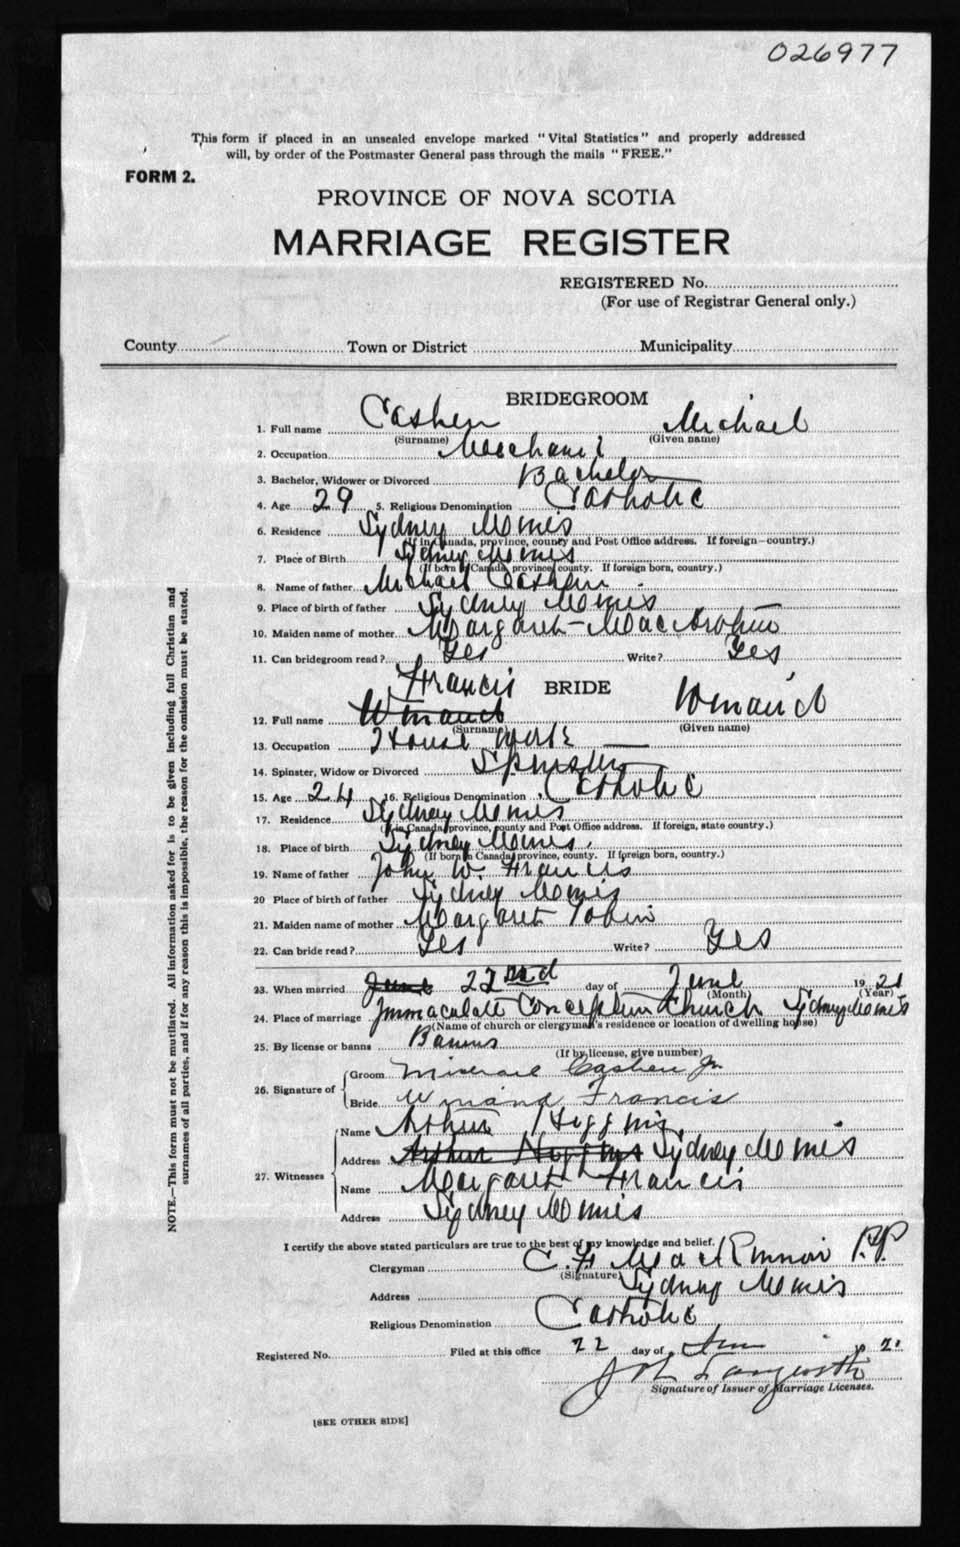 026977
This form if placed in an unsealed envelope marked "Vital Statistics" and properly addressed
will, by order of the Postmaster General pass through the mails "FREE."
FORM 2.
PROVINCE OF NOVA SCOTIA
MARRIAGE REGISTER
REGISTERED No.
(For use of Registrar General only.)
County Town or District Municipality
BRIDEGROOM
1. Full name Cashen Michael
(Surname) (Given name)
2. Occupation Mechanic
3. Bachelor, Widower or Divorced Bachelor
4. Age 29 5. Religious Denomination Catholic
6. Residence Sydney Mines
(If in Canada, province, county and Post Office address. If foreign—country.)
7. Place of Birth Sydney Mines
(If born in Canada, province, county. If foreign born, country.)
8. Name of father Michael Cashen
9. Place of birth of father Sydney Mines
10. Maiden name of mother Margaret
11. Can bridegroom read? Yes Write? Yes
BRIDE
Francis
12. Full name Winand Winand
(Surname) (Given name)
13. Occupation House work
14. Spinster, Widow or Divorced Spinster
15. Age 24 16. Religious Denomination Catholic
17. Residence Sydney Mines
(If in Canada, province, county and Post Office address. If foreign, state country.)
18. Place of birth Sydney Mines
(If born in Canada, province, county. If foreign born, country.)
19. Name of father John W. Francis
20 Place of birth of father Sydney Mines
21. Maiden name of mother Margaret Tobin
22. Can bride read? Yes Write? Yes
23. When married June 22nd day of June 1921
(Month) (Year)
24. Place of marriage Immaculate Conception Church Sydney Mines
(Name of church or clergyman's residence or location of dwelling house)
25. By license or banns Banns
(If by license, give number)
26. Signature of
Groom Michael Cashen Jr.
Bride Winand Francis
27. Witnesses
Name Arthur Higgins
Address Arthur Higgins Sydney Mines
Name Margaret Francis
Address Sydney Mines
I certify the above stated particulars are true to the best of my knowledge and belief.
Clergyman C. F. MacKinnon P.P.
(Signature)
Address Sydney Mines
Religious Denomination Catholic
Registered No. Filed at this office 22 day of 21
Signature of Issuer of Marriage Licenses.
[SEE OTHER SIDE]
NOTE.—This form must not be mutilated. All information asked for is to be given including full Christian and
surnames of all parties, and if for any reason this is impossible, the reason for the omission must be stated.